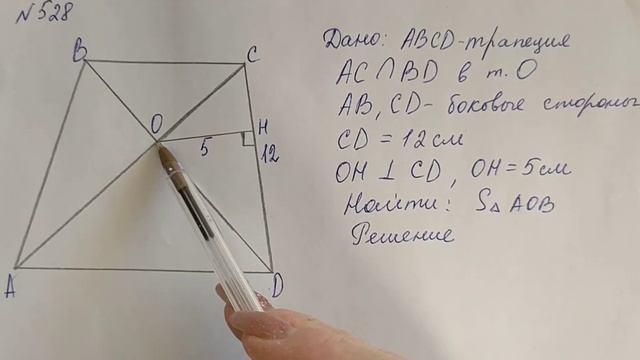 N528
B
C
O
H
5
12
A
D
Дано: ABCD-трапеция
AC ∩ BD в т. O
AB, CD - боковые стороны
CD = 12 см
OH ⊥ CD, OH = 5 см
Найти: S△AOB
Решение